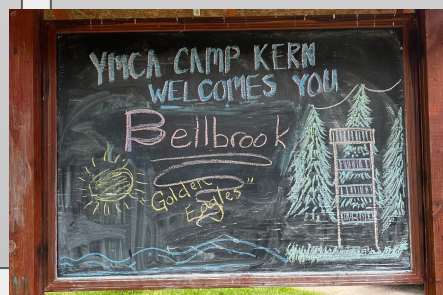 YMCA CAMP KERN
WELCOMES YOU
Bellbrook
"Golden
Eagles"